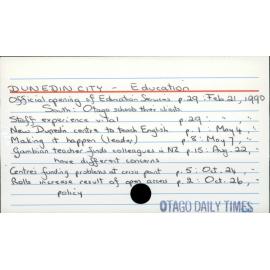 DUNEDIN CITY - Education
Official opening of Education Services p.29 : Feb 21, 1990
South: Otago schools their
Staff experience vital p.29 : " " , "
New Dunedin centre to teach English p.1 : May 4, "
Making it happen (leader) p.8 : May 7, "
Gambian teacher finds colleagues in NZ p.15 : Aug. 22, "
have different concerns
Centres funding problems at crisis point p.5 : Oct. 24, "
Rolls increase result of open access p.2 : Oct. 26, "
policy
OTAGO DAILY TIMES